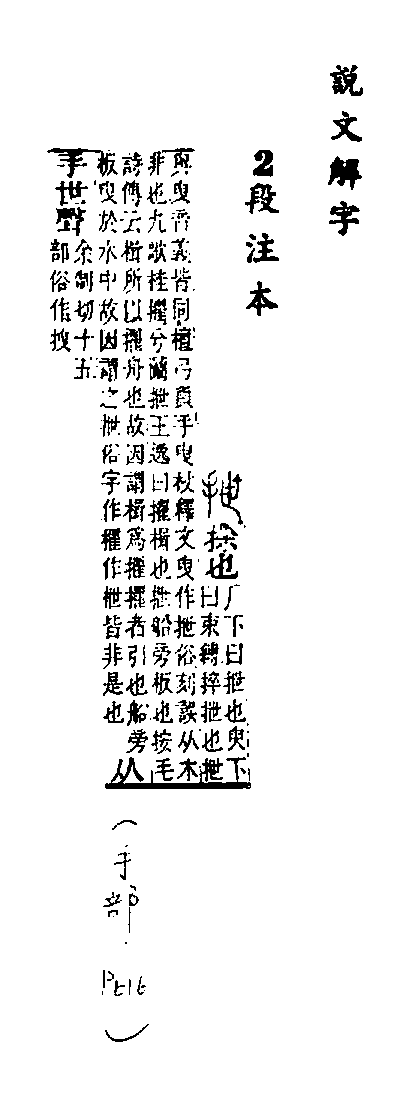 說文解字
2段注本
抴捈也
厂下曰抴也臾下
曰束縛捽抴也抴
與曳音義皆同檀弓負手曳杖釋文曳作抴俗刻誤从木
非也九歌桂擢兮蘭抴王逸曰擢楫也抴船旁板也按毛
詩傳云楫所以擢舟也故因謂楫爲擢擢者引也船旁
板曳於水中故因謂之抴俗字作櫂作枻皆非是也
从
手世聲
余制切十五
部俗作拽
(手部.)